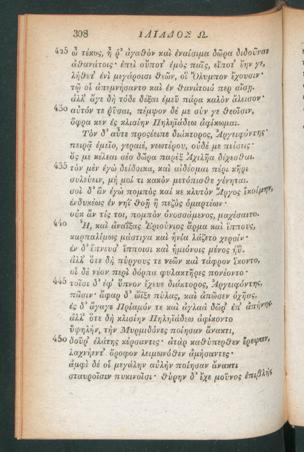 308 ΙΛΙΑΔΟΣ Ω.
425 ὦ τέκος, ἦ ῥ' ἀγαθὸν καὶ ἐναίσιμα δῶρα διδοῦναι
ἀθανάτοις· ἐπεὶ οὔποτ' ἐμὸς παῖς, εἴποτ' ἔην γε,
λήθετ' ἐνὶ μεγάροισι θεῶν, οἳ Ὄλυμπον ἔχουσιν·
τῷ οἱ ἀπεμνήσαντο καὶ ἐν θανάτοιό περ αἴσῃ.
ἀλλ' ἄγε δὴ τόδε δέξαι ἐμεῦ πάρα καλὸν ἄλεισον·
430 αὐτόν τε ῥῦσαι, πέμψον δέ με σύν γε θεοῖσιν,
ὄφρα κεν ἐς κλισίην Πηληϊάδεω ἀφίκωμαι.
Τὸν δ' αὖτε προσέειπε διάκτορος, Ἀργειφόντης·
πειρᾷ ἐμεῖο, γεραιέ, νεωτέρου, οὐδέ με πείσεις·
ὅς με κέλεαι σέο δῶρα παρὲξ Ἀχιλῆα δέχεσθαι.
435 τὸν μὲν ἐγὼ δείδοικα, καὶ αἰδέομαι πέρι κῆρι
συλεύειν, μή μοί τι κακὸν μετόπισθε γένηται.
σοὶ δ' ἂν ἐγὼ πομπὸς καί κε κλυτὸν Ἄργος ἱκοίμην,
ἐνδυκέως ἐν νηῒ θοῇ ἢ πεζὸς ὁμαρτέων·
οὐκ ἄν τίς τοι, πομπὸν ὀνοσσάμενος, μαχέσαιτο.
440 Ἦ, καὶ ἀναΐξας Ἐριούνιος ἅρμα καὶ ἵππους,
καρπαλίμως μάστιγα καὶ ἡνία λάζετο χερσίν·
ἐν δ' ἔπνευσ' ἵπποισι καὶ ἡμιόνοις μένος ἠΰ.
ἀλλ' ὅτε δὴ πύργους τε νεῶν καὶ τάφρον ἵκοντο,
οἱ δὲ νέον περὶ δόρπα φυλακτῆρες πονέοντο·
445 τοῖσι δ' ἐφ' ὕπνον ἔχευε διάκτορος, Ἀργειφόντης,
πᾶσιν· ἄφαρ δ' ὤϊξε πύλας, καὶ ἀπῶσεν ὀχῆας,
ἐς δ' ἄγαγε Πρίαμόν τε καὶ ἀγλαὰ δῶρ' ἐπ' ἀπήνης.
ἀλλ' ὅτε δὴ κλισίην Πηληϊάδεω ἀφίκοντο
ὑψηλήν, τὴν Μυρμιδόνες ποίησαν ἄνακτι,
450 δοῦρ' ἐλάτης κέρσαντες· ἀτὰρ καθύπερθεν ἔρεψαν,
λαχνήεντ' ὄροφον λειμωνόθεν ἀμήσαντες·
ἀμφὶ δέ οἱ μεγάλην αὐλὴν ποίησαν ἄνακτι
σταυροῖσιν πυκινοῖσι· θύρην δ' ἔχε μοῦνος ἐπιβλὴς